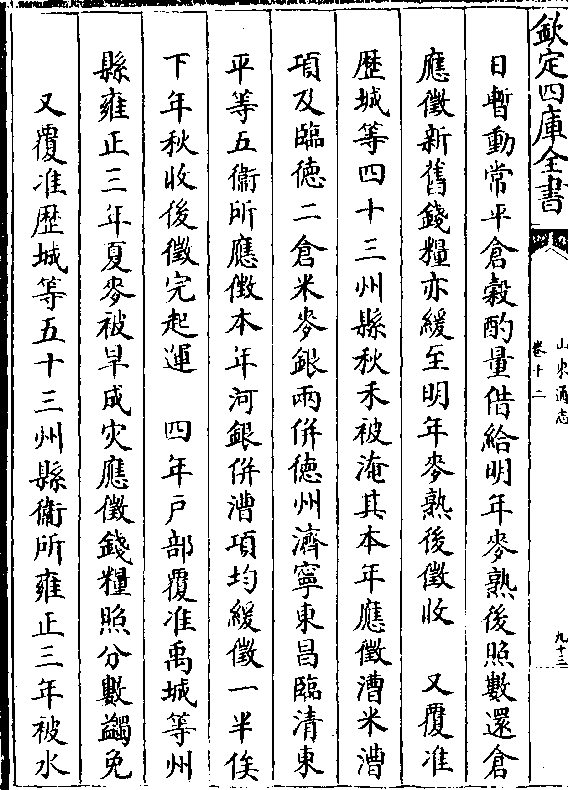 欽定四庫全書
山東通志
卷十二
九十三
日暫動常平倉穀酌量借給明年麥熟後照數還倉
應徵新舊錢糧亦緩至明年麥熟後徵收　又覆准
歴城等四十三州縣秋禾被淹其本年應徵漕米漕
項及臨徳二倉米麥銀兩併徳州濟寧東昌臨清東
平等五衞所應徵本年河銀併漕項均緩徵一半俟
下年秋收後徵完起運　四年戸部覆准禹城等州
縣雍正三年夏麥被旱成灾應徵錢糧照分數蠲免
又覆准歴城等五十三州縣衞所雍正三年被水